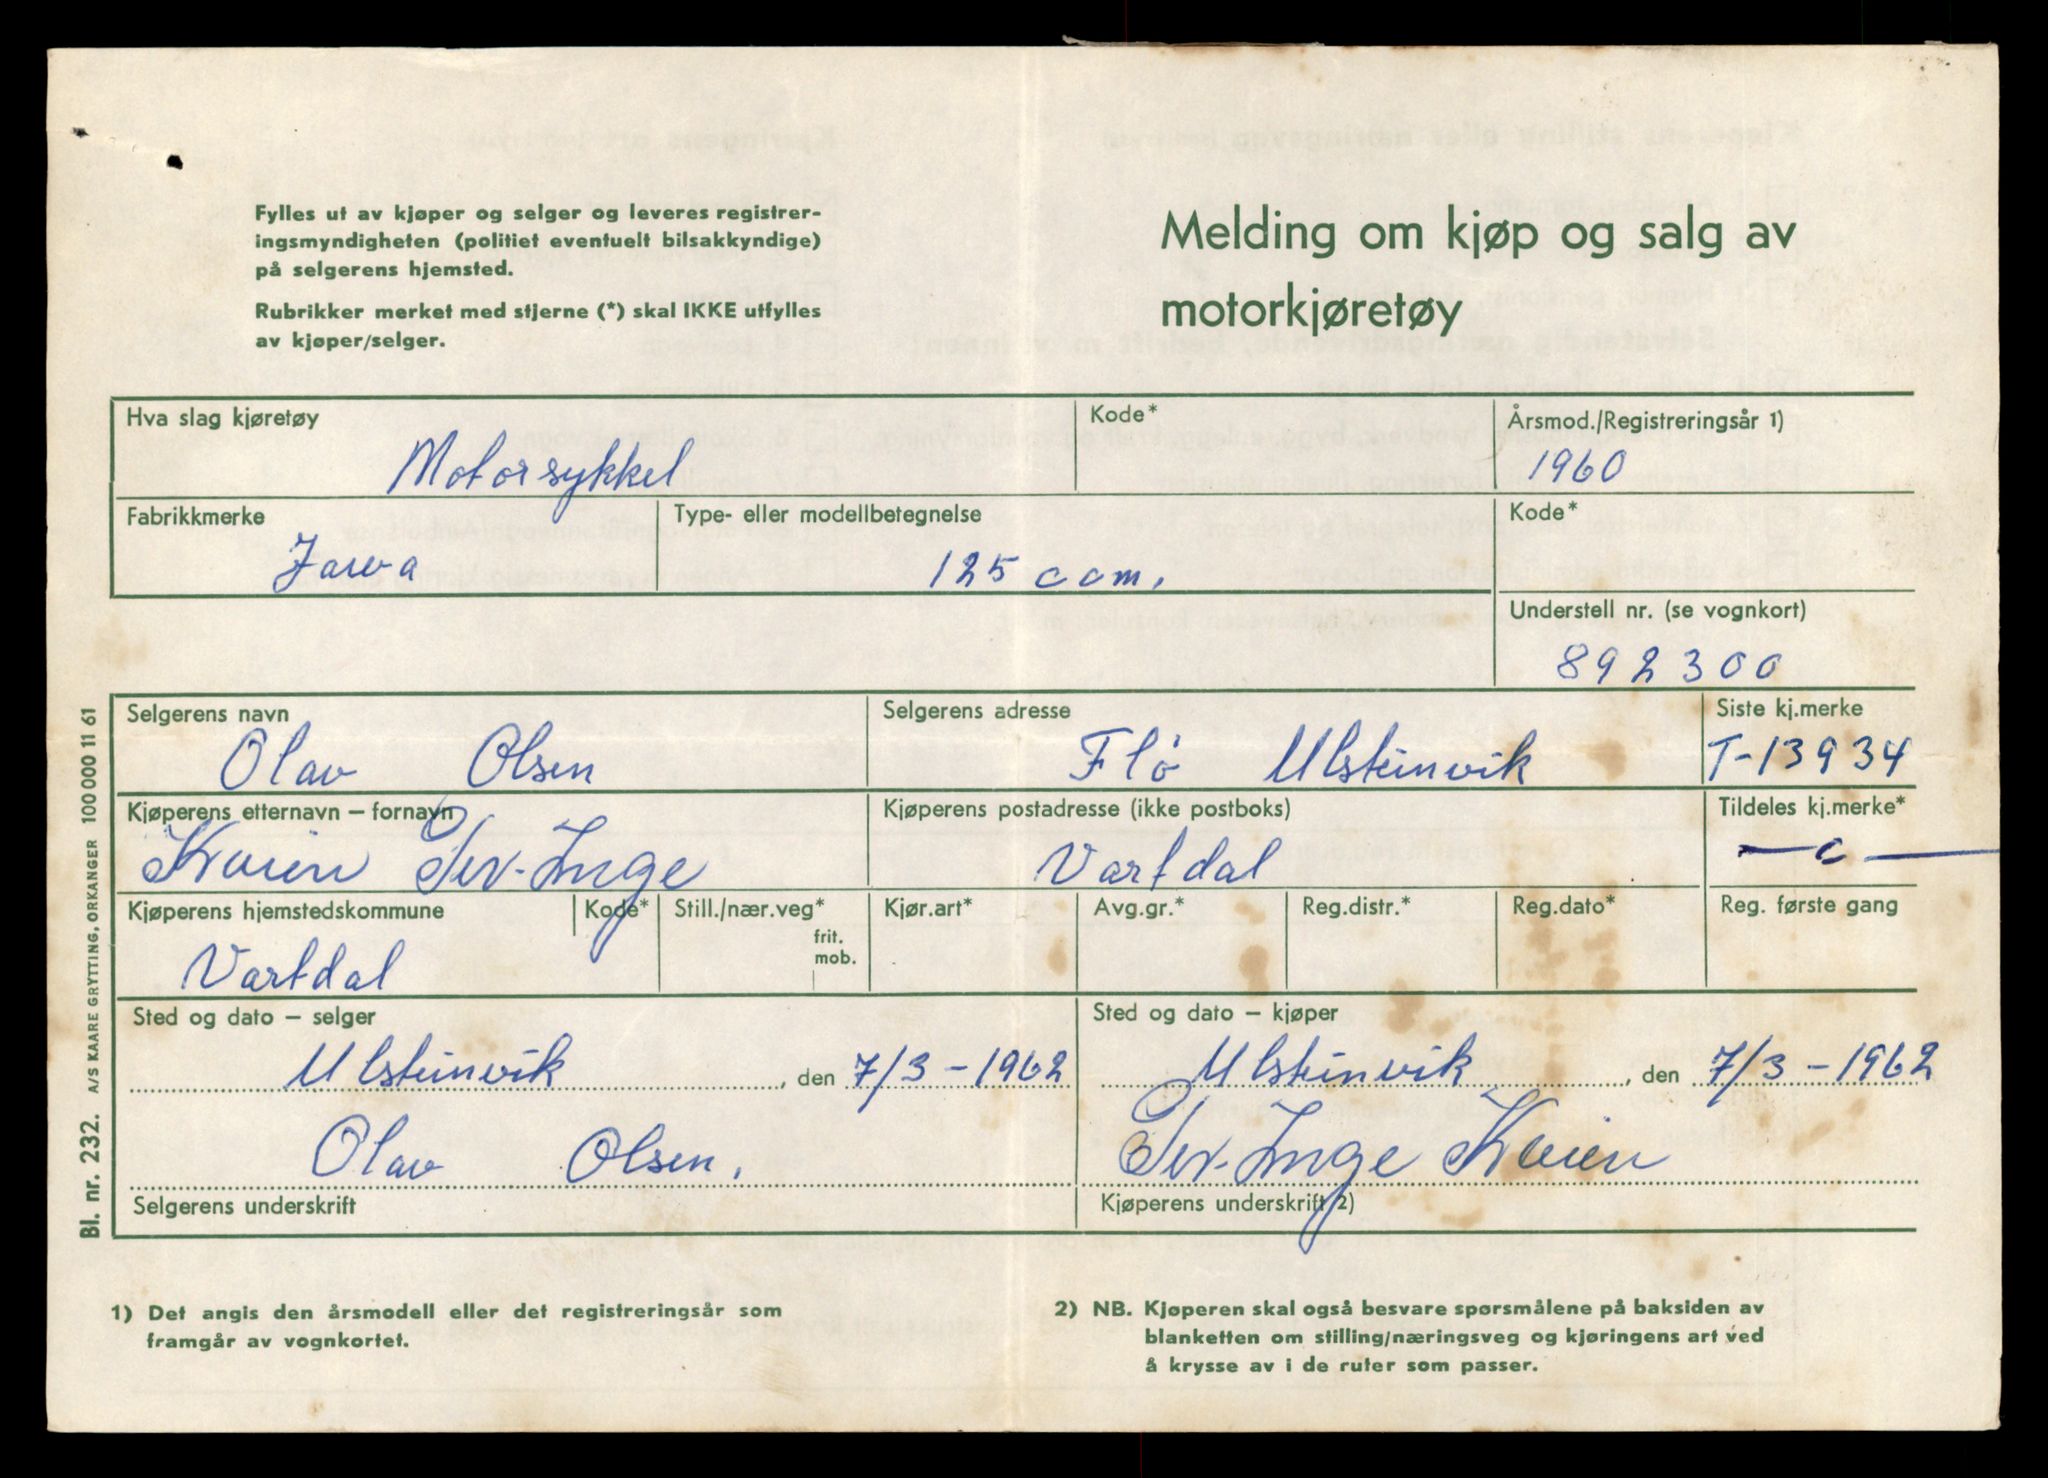 Fylles ut av kjøper og selger og leveres registrer-
ingsmyndigheten (politiet eventuelt bilsakkyndige)
på selgerens hjemsted.
Rubrikker merket med stjerne (*) skal IKKE utfylles
av kjøper/selger.
Melding om kjøp og salg av
motorkjøretøy
Hva slag kjøretøy
Motorsykkel
Kode*
Årsmod./Registreringsår 1)
1960
Fabrikkmerke
Jawa
Type- eller modellbetegnelse
125 ccm.
Kode*
Understell nr. (se vognkort)
892300
Selgerens navn
Olav Olsen
Selgerens adresse
Flø Ulsteinvik
Siste kj.merke
T-13934
Kjøperens etternavn – fornavn
Kvien Per-Inge
Kjøperens postadresse (ikke postboks)
Vartdal
Tildeles kj.merke*
Kjøperens hjemstedskommune
Vartdal
Kode*
Still./nær.veg*
frit.
mob.
Kjør.art*
Avg.gr.*
Reg.distr.*
Reg.dato*
Reg. første gang
Sted og dato – selger
Ulsteinvik, den 7/3-1962
Olav Olsen.
Selgerens underskrift
Sted og dato – kjøper
Ulsteinvik, den 7/3-1962
Per-Inge Kvien
Kjøperens underskrift 2)
1) Det angis den årsmodell eller det registreringsår som
framgår av vognkortet.
2) NB. Kjøperen skal også besvare spørsmålene på baksiden av
blanketten om stilling/næringsveg og kjøringens art ved
å krysse av i de ruter som passer.
Bl. nr. 232. A/S KAARE GRYTTING, ORKANGER 100 000 11 61